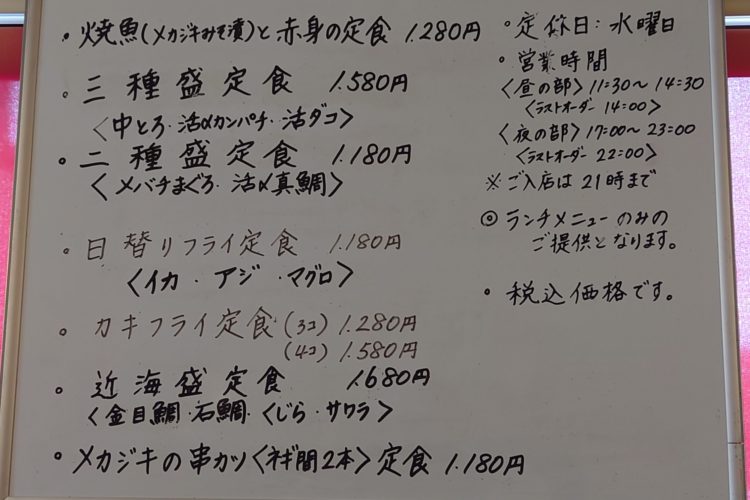 ・焼魚(メカジキみそ漬)と赤身の定食 1.280円
。三種盛定食 1.580円
〈中とろ・活〆カンパチ・活ダコ〉
・二種盛定食 1.180円
〈メバチまぐろ・活〆真鯛〉
・日替りフライ定食 1.180円
〈イカ・アジ・マグロ〉
。カキフライ定食(3コ) 1.280円
(4コ) 1.580円
。近海盛定食 1.680円
〈金目鯛・石鯛・くじら・サワラ〉
・メカジキの串カツ〈ネギ間2本〉定食 1.180円
・定休日:水曜日
・営業時間
〈昼の部〉11:30〜14:30
〈ラストオーダー 14:00〉
〈夜の部〉17:00〜23:00
〈ラストオーダー 22:00〉
※ご入店は21時まで
◎ランチメニューのみの
ご提供となります。
・税込価格です。